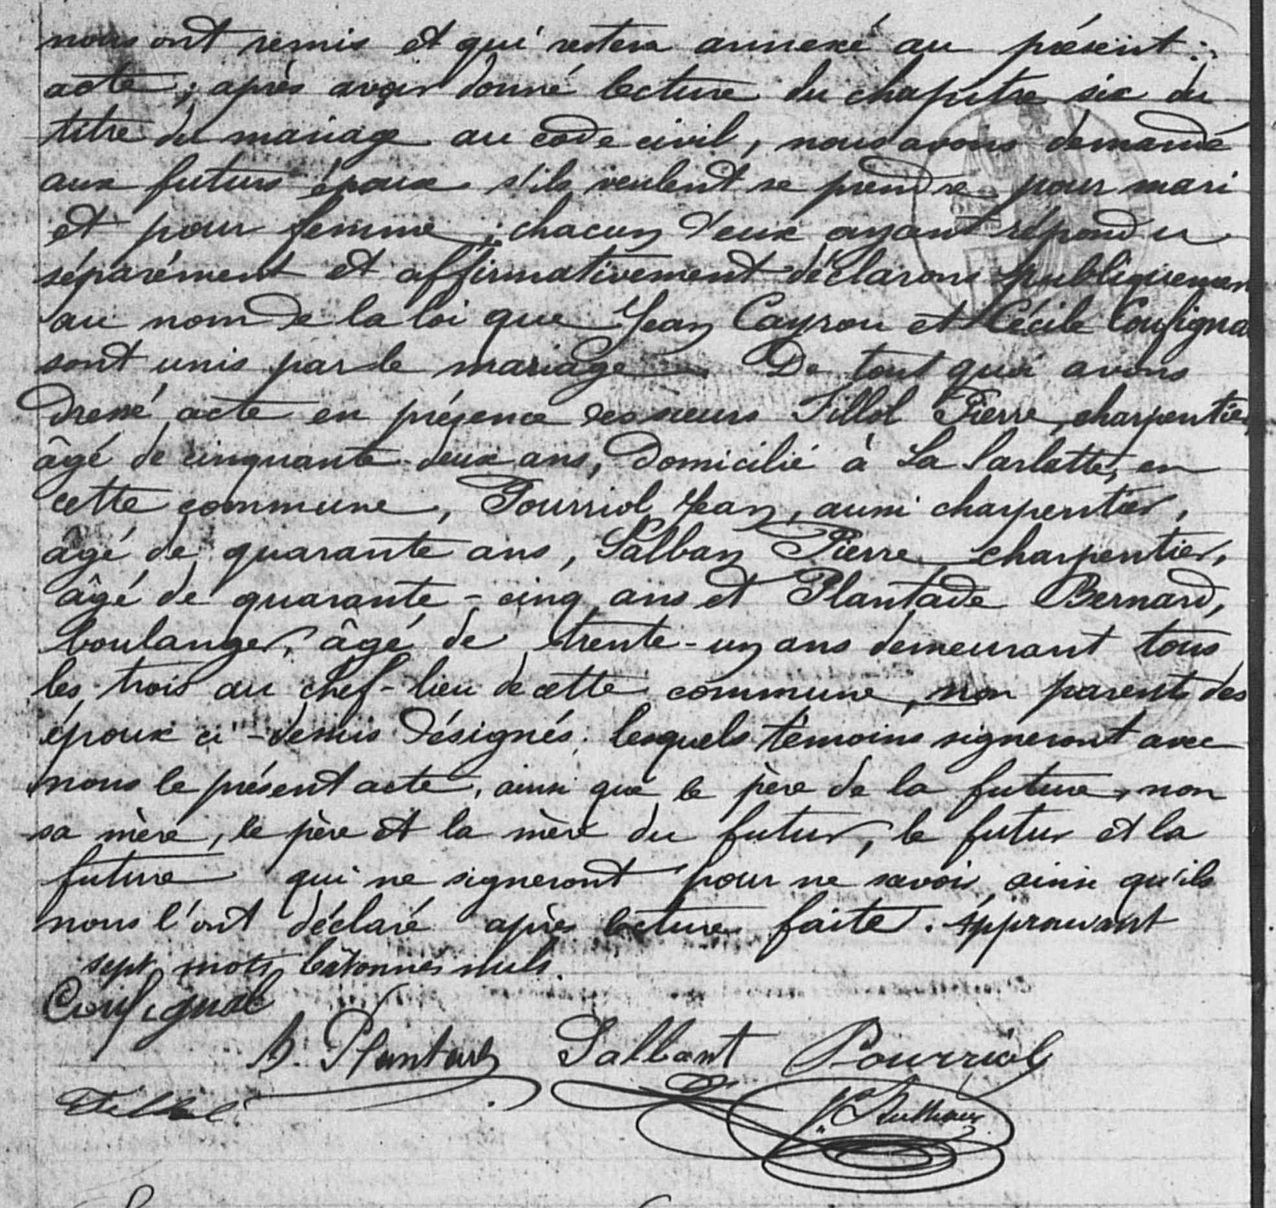 nous ont remis et qui restera annexé au présent
acte ; après avoir donné lecture du chapitre six du
titre du mariage au code civil, nous avons demandé
aux futurs époux s'ils veulent se prendre pour mari
et pour femme ; chacun d'eux ayant répondu
séparément et affirmativement déclarons publiquement
au nom de la loi que Jean Cayrou et Cécile Coufignal
sont unis par le mariage. De tout quoi avons
dressé acte en présence des sieurs Fillol Pierre, charpentier,
âgé de cinquante-deux ans, domicilié à La Sarlatte, en
cette commune, Pourriol Jean, aussi charpentier,
âgé de quarante ans, Salban Pierre, charpentier,
âgé de quarante-cinq ans et Plantade Bernard,
boulanger, âgé de trente-un ans demeurant tous
les trois au chef-lieu de cette commune, non parents des
époux ci-dessus désignés ; lesquels témoins signeront avec
nous le présent acte, ainsi que le père de la future, non
sa mère, le père et la mère du futur, le futur et la
future qui ne signeront pour ne savoir ainsi qu'ils
nous l'ont déclaré après lecture faite. Approuvant
sept mots bâtonnés nuls.
Coufignal
B. Plantade Salbant Pourriol
Fillol